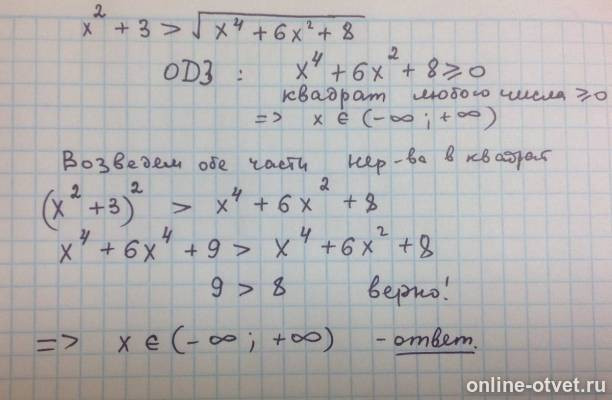 x² + 3 > √(x⁴ + 6x² + 8)
ОДЗ : x⁴ + 6x² + 8 ≥ 0
квадрат любого числа ≥ 0
=> x ∈ (-∞ ; +∞)
Возведем обе части нер-ва в квадрат
(x² + 3)² > x⁴ + 6x² + 8
x⁴ + 6x⁴ + 9 > x⁴ + 6x² + 8
9 > 8 верно!
=> x ∈ (-∞ ; +∞) - ответ.
online-otvet.ru